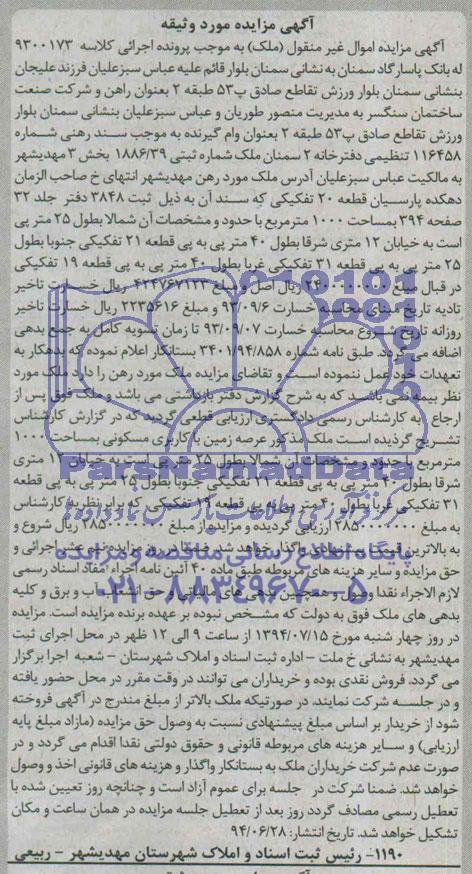 آگهی مزایده مورد وثیقه
آگهی مزایده اموال غیر منقول (ملک) به موجب پرونده اجرائی کلاسه ۹۳۰۰۱۷۳
له بانک پاسارگاد سمنان به نشانی سمنان بلوار قائم علیه عباس سبزعلیان فرزند علیجان
بنشانی سمنان بلوار ورزش تقاطع صادق پ۵۳ طبقه ۲ بعنوان راهن و شرکت صنعت
ساختمان سنگسر به مدیریت منصور طوریان و عباس سبزعلیان بنشانی سمنان بلوار
ورزش تقاطع صادق پ۵۳ طبقه ۲ بعنوان وام گیرنده به موجب سند رهنی شماره
۱۱۶۴۵۸ تنظیمی دفترخانه ۲ سمنان ملک شماره ثبتی ۱۸۸۶/۳۹ بخش ۳ مهدیشهر
به مالکیت عباس سبزعلیان آدرس ملک مورد رهن مهدیشهر انتهای خ صاحب الزمان
دهکده پارسیان قطعه ۲۰ تفکیکی که سند آن به ذیل ثبت ۳۸۴۸ دفتر جلد ۳۲
صفحه ۳۹۴ بمساحت ۱۰۰۰ مترمربع با حدود و مشخصات آن شمالا بطول ۲۵ متر پی
است به خیابان ۱۲ متری شرقا بطول ۴۰ متر پی به پی قطعه ۲۱ تفکیکی جنوبا بطول
۲۵ متر پی به پی قطعه ۳۱ تفکیکی غربا بطول ۴۰ متر پی به پی قطعه ۱۹ تفکیکی
در قبال مبلغ ریال اصل و مبلغ ۴۲۴۷۶۷۱۲۳ ریال خسارت تاخیر
تادیه تاریخ مبنای محاسبه خسارت ۹۳/۰۹/۶ و مبلغ ۲۲۳۵۶۱۶ ریال خسارت تاخیر
روزانه تاریخ شروع محاسبه خسارت ۹۳/۰۹/۰۷ تا زمان تسویه کامل به جمع بدهی
اضافه می گردد. طبق نامه شماره ۳۴۰۱/۹۴/۸۵۸ بستانکار اعلام نموده که بدهکار به
تعهدات خود عمل ننموده است و تقاضای مزایده ملک مورد رهن را دارد ملک مورد
نظر بیمه نمی باشد که به شرح گزارش دفتر بازداشتی می باشد و ملک فوق پس از
ارجاع به کارشناس رسمی دادگستری ارزیابی قطعی گردید که در گزارش کارشناس
تشریح گردیده است ملک مذکور عرصه زمین با کاربری مسکونی بمساحت ۱۰۰۰
مترمربع با حدود و مشخصات آن شمالا بطول ۲۵ متر پی است به خیابان ۱۲ متری
شرقا بطول ۴۰ متر پی به پی قطعه ۲۱ تفکیکی جنوبا بطول ۲۵ متر پی به پی قطعه
۳۱ تفکیکی غربا بطول ۴۰ متر پی به پی قطعه ۱۹ تفکیکی که برابر نظر به کارشناس
به مبلغ ریال ارزیابی گردیده و مزایده از مبلغ ریال شروع و
به بالاترین قیمت پیشنهادی واگذار خواهد شد. ضمنا در روز مزایده نیم عشر اجرائی و
حق مزایده و سایر هزینه های مربوطه طبق ماده ۴۰ آئین نامه اجراء مفاد اسناد رسمی
لازم الاجراء نقدا وصول و همچنین بدهی های مالیاتی و حق انشعاب آب و برق و کلیه
بدهی های ملک فوق به دولت که مشخص نبوده بر عهده برنده مزایده است. مزایده
در روز چهار شنبه مورخ ۱۳۹۴/۰۷/۱۵ از ساعت ۹ الی ۱۲ ظهر در محل اجرای ثبت
مهدیشهر به نشانی خ ملت – اداره ثبت اسناد و املاک شهرستان – شعبه اجرا برگزار
می گردد. فروش نقدی بوده و خریداران می توانند در وقت مقرر در محل حضور یافته
و در جلسه شرکت نمایند. در صورتیکه ملک بالاتر از مبلغ مندرج در آگهی فروخته
شود از خریدار بر اساس مبلغ پیشنهادی نسبت به وصول حق مزایده (مازاد مبلغ پایه
ارزیابی) و سایر هزینه های مربوطه قانونی و حقوق دولتی نقدا اقدام می گردد و در
صورت عدم شرکت خریداران ملک به بستانکار واگذار و هزینه های قانونی اخذ و وصول
خواهد شد. ضمنا شرکت در جلسه برای عموم آزاد است و چنانچه روز تعیین شده با
تعطیل رسمی مصادف گردد روز بعد از تعطیل جلسه مزایده در همان ساعت و مکان
تشکیل خواهد شد. تاریخ انتشار: ۹۴/۰۶/۲۸
۱۱۹۰- رئیس ثبت اسناد و املاک شهرستان مهدیشهر - ربیعی
ParsNamadData
پایگاه اطلاع رسانی مناقصه و مزایده
۰۲۱-۸۸۳۴۹۶۷۰-۵